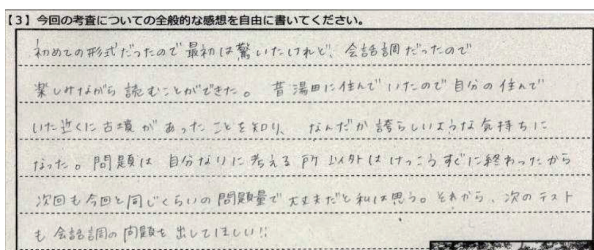 【3】今回の考査についての全般的な感想を自由に書いてください。
初めての形式だったので最初は驚いたけれど、会話調だったので
楽しみながら読むことができた。昔湯田に住んでいたので自分の住んで
いた近くに古墳があったことを知り、なんだか誇らしいような気持ちに
なった。問題は自分なりに考える所以外はけっこうすぐに終わったから
次回も今回と同じくらいの問題量で大丈夫だと私は思う。それから、次のテスト
も会話調の問題を出してほしい!!